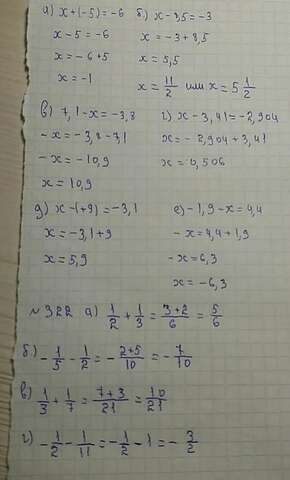 а) x+(-5)=-6 б) x-8,5=-3
x-5=-6 x=-3+8,5
x=-6+5 x=5,5
x=-1 x=11/2 или x=5 1/2
в) 7,1-x=-3,8 г) x-3,41=-2,904
-x=-3,8-7,1 x=-2,904+3,41
-x=-10,9 x=0,506
x=10,9
д) x-(+9)=-3,1 е) -1,9-x=4,4
x=-3,1+9 -x=4,4+1,9
x=5,9 -x=6,3
x=-6,3
№322 а) 1/2+1/3=3+2/6=5/6
б) -1/5-1/2=-2+5/10=-7/10
в) 1/3+1/7=7+3/21=10/21
г) -1/2-1/11=-1/2-1=-3/2